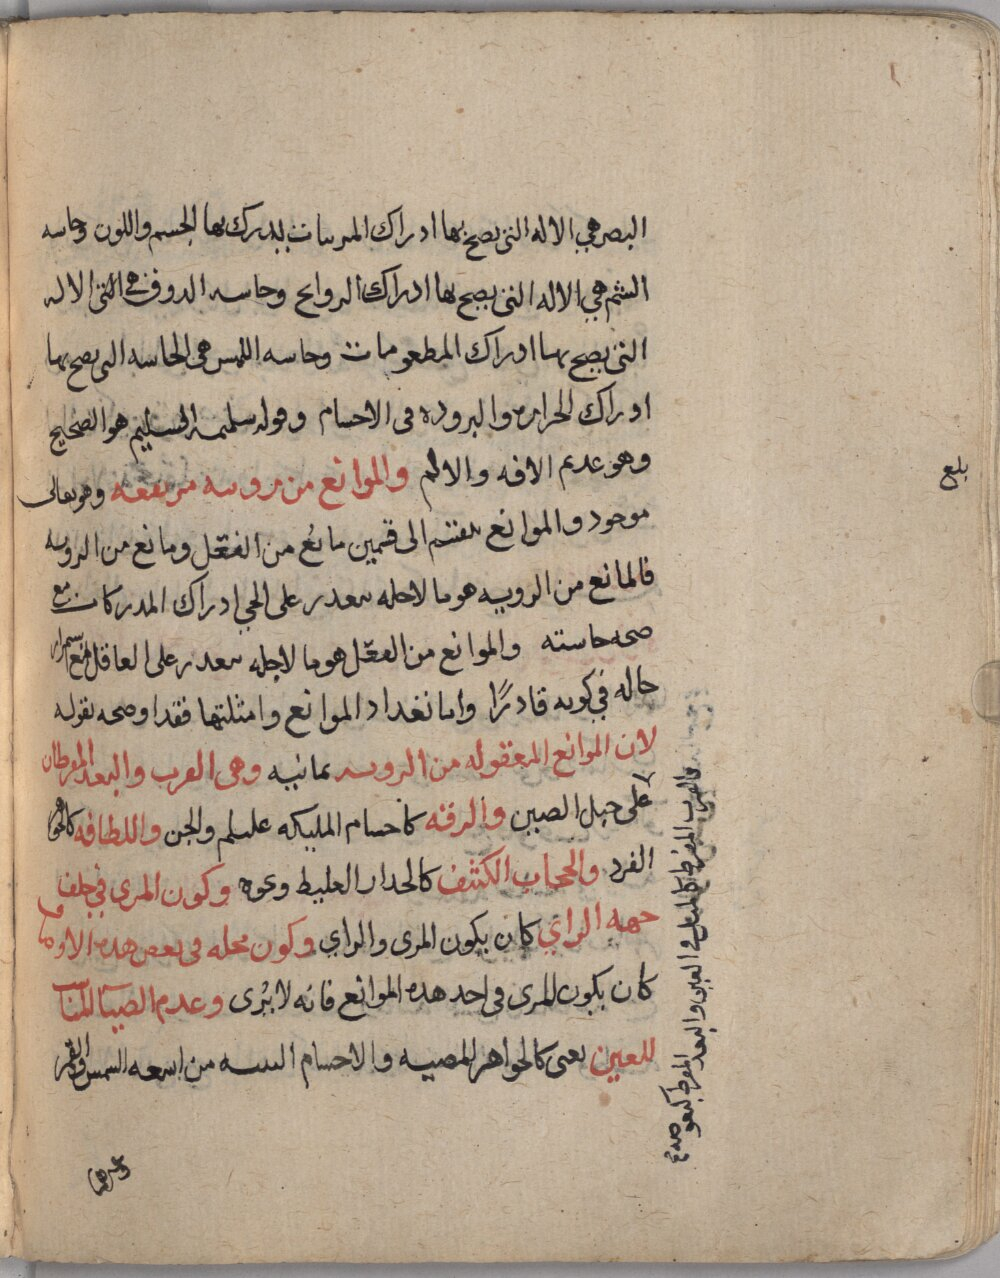 البصر هي الاله التي يصح بها ادراك المرييات يدرك بها الجسم واللون وحاسه
الشم هي الاله التي يصح بها ادراك الروايح وحاسه الذوق هي التي الاله
التي يصح بها ادراك المطعومات وحاسه اللمس هي الحاسه التي يصح بها
ادراك الحراره والبروده في الاجسام وقوله سليمه السليم هو الصحيح
وهو عديم الافه والالم والموانع من رويته مرتفعه وهو تعالى
موجود والموانع تنقسم الى قسمين مانع من الفعل ومانع من الرويه
فالمانع من الرويه هو ما لاجله يتعذر على الحي ادراك المدركات مع
صحه حاسته والموانع من الفعل هو ما لاجله يتعذر على العاقل مع استمرار
حاله في كونه قادرًا واما تعداد الموانع وامثلتها فقد اوضحه بقوله
لان الموانع المعقوله من الرويه ثمانيه وهي القرب والبعد المفرطان
على جبل الصين والرقه كاجسام المليكه عليهلم والجن واللطافه كالجوهر
الفرد والحجاب الكثيف كالجدار الغليظ ونحوه وكون المرى في خلف
جهه الراي كان يكون المرى والراي وكون محله في بعض هذه الاوصاف
كان يكون المرى في احد هذه الموانع فانه لا يُرى وعدم الضيا المناسب
للعين يعني كالجواهر المضيه والاجسام من اشعه الشمس والقمر
بلغ
فالقرب المفرط كالميل في العين والبعد المفرط كمن هو